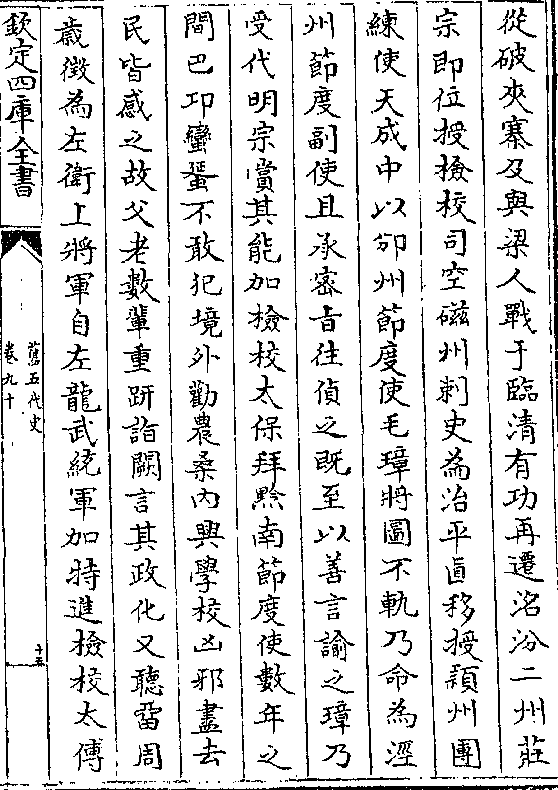 從破夾寨及與梁人戰于臨清有功再遷洺汾二州莊
宗即位授檢校司空磁州刺史為治平直移授潁州團
練使天成中以邠州節度使毛璋將圖不軌乃命為涇
州節度副使且承密旨往偵之既至以善言諭之璋乃
受代明宗賞其能加檢校太保拜黔南節度使數年之
間巴邛蠻蜑不敢犯境外勸農桑內興學校凶邪盡去
民皆感之故父老數輩重趼詣闕言其政化又聽留周
歲徵為左衛上將軍自左龍武統軍加特進檢校太傅
欽定四庫全書
舊五代史
卷九十
十五